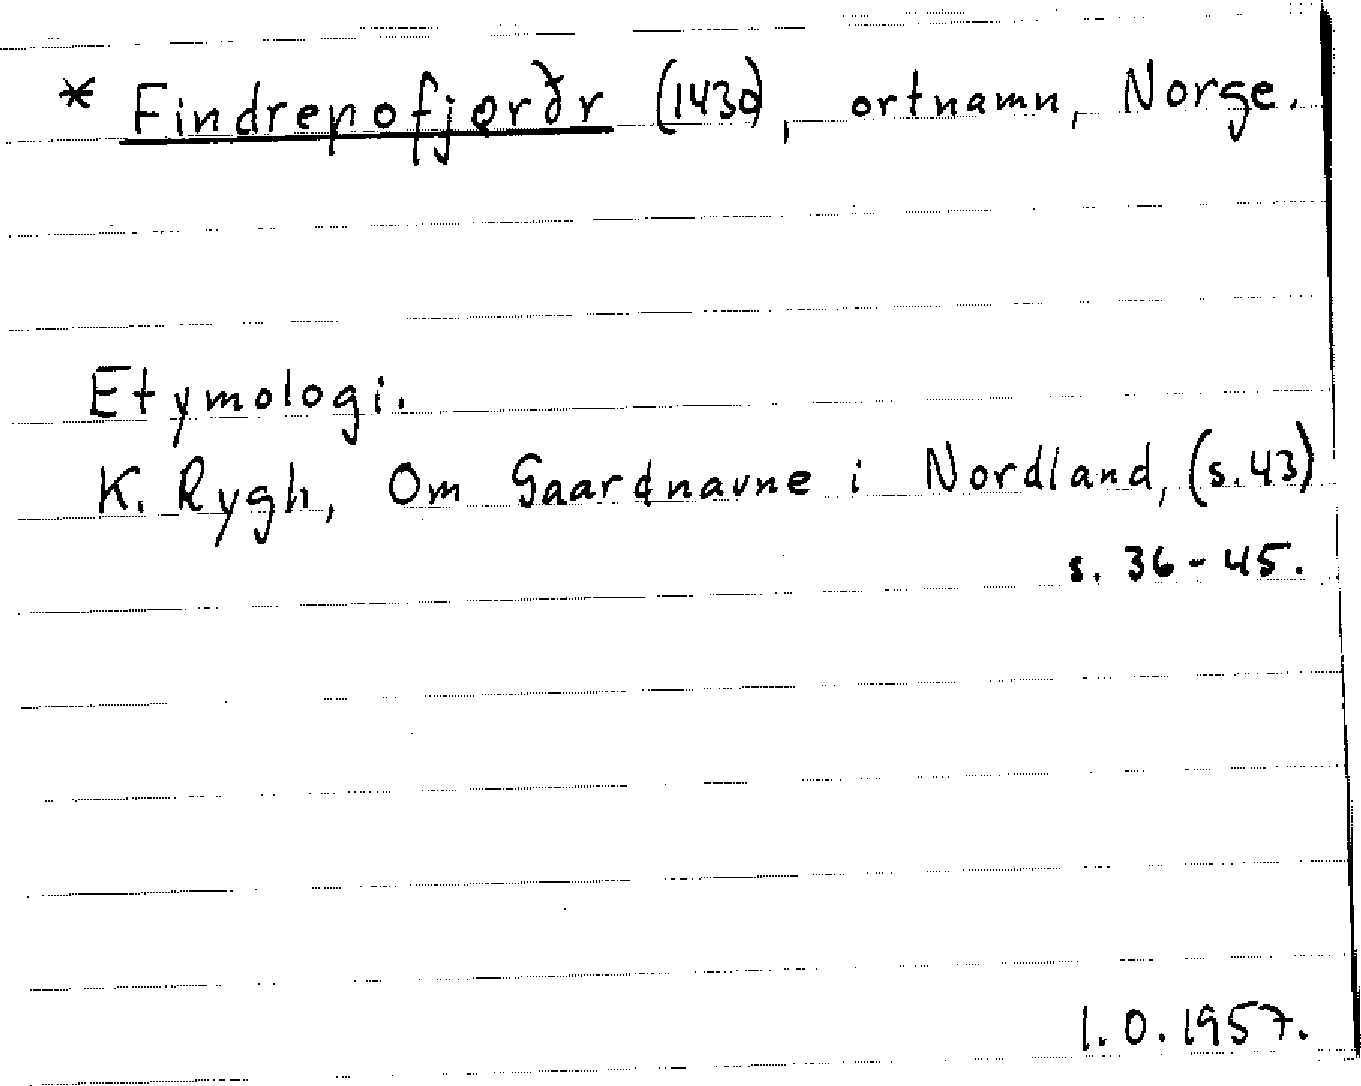 * Findrepofjørðr (1430), ortnamn, Norge.
Etymologi.
K. Rygh, Om Gaardnavne i Nordland, (s. 43)
s. 36-45.
1.0.1957.